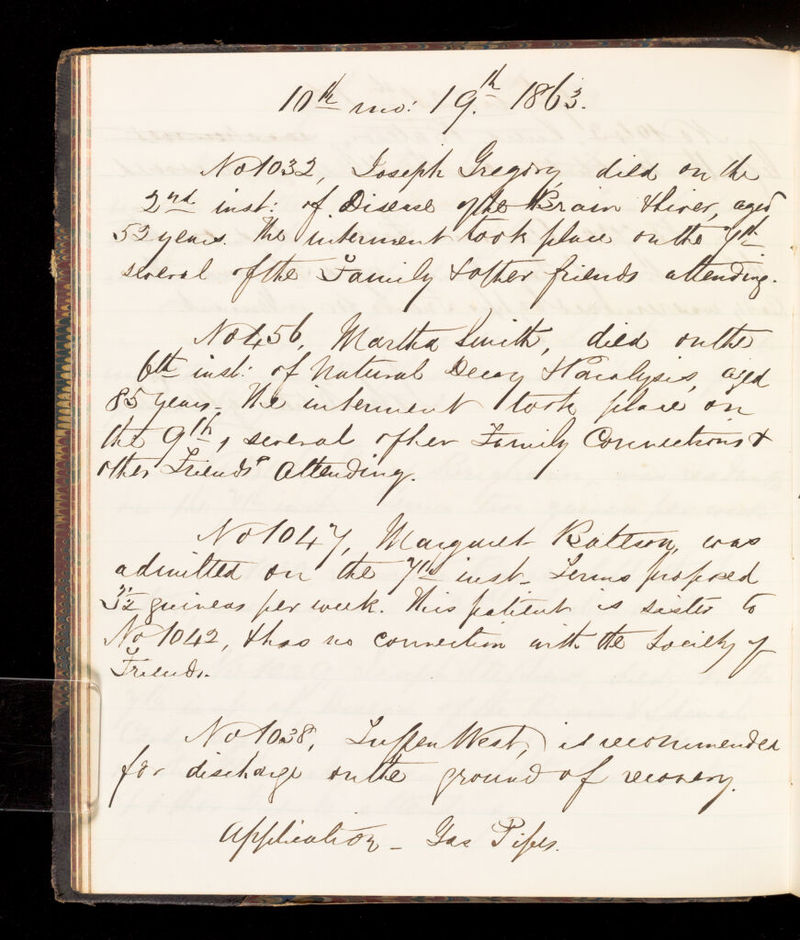 10th mo: 19th. 1863.
No 1032, Joseph Gregory, died on the
2nd. inst: of Disease of the Brain & Liver, aged
52 years. The interment took place on the 7th
several of the Family & other friends attending.
No 456, Martha Smith, died on the
6th inst: of Natural Decay & Paralysis, aged
85 years. The interment took place on
the 9th, several of her Family Connections &
other Friends attending.
No 1047, Margaret Batteson, was
admitted on the 7th inst. Terms proposed
3½ guineas per week. This patient is sister to
No 1042, & has no connection with the Society of
Friends.
No 1038, Tuffen West, is recommended
for discharge on the ground of recovery.
Application - Gas Pipes.